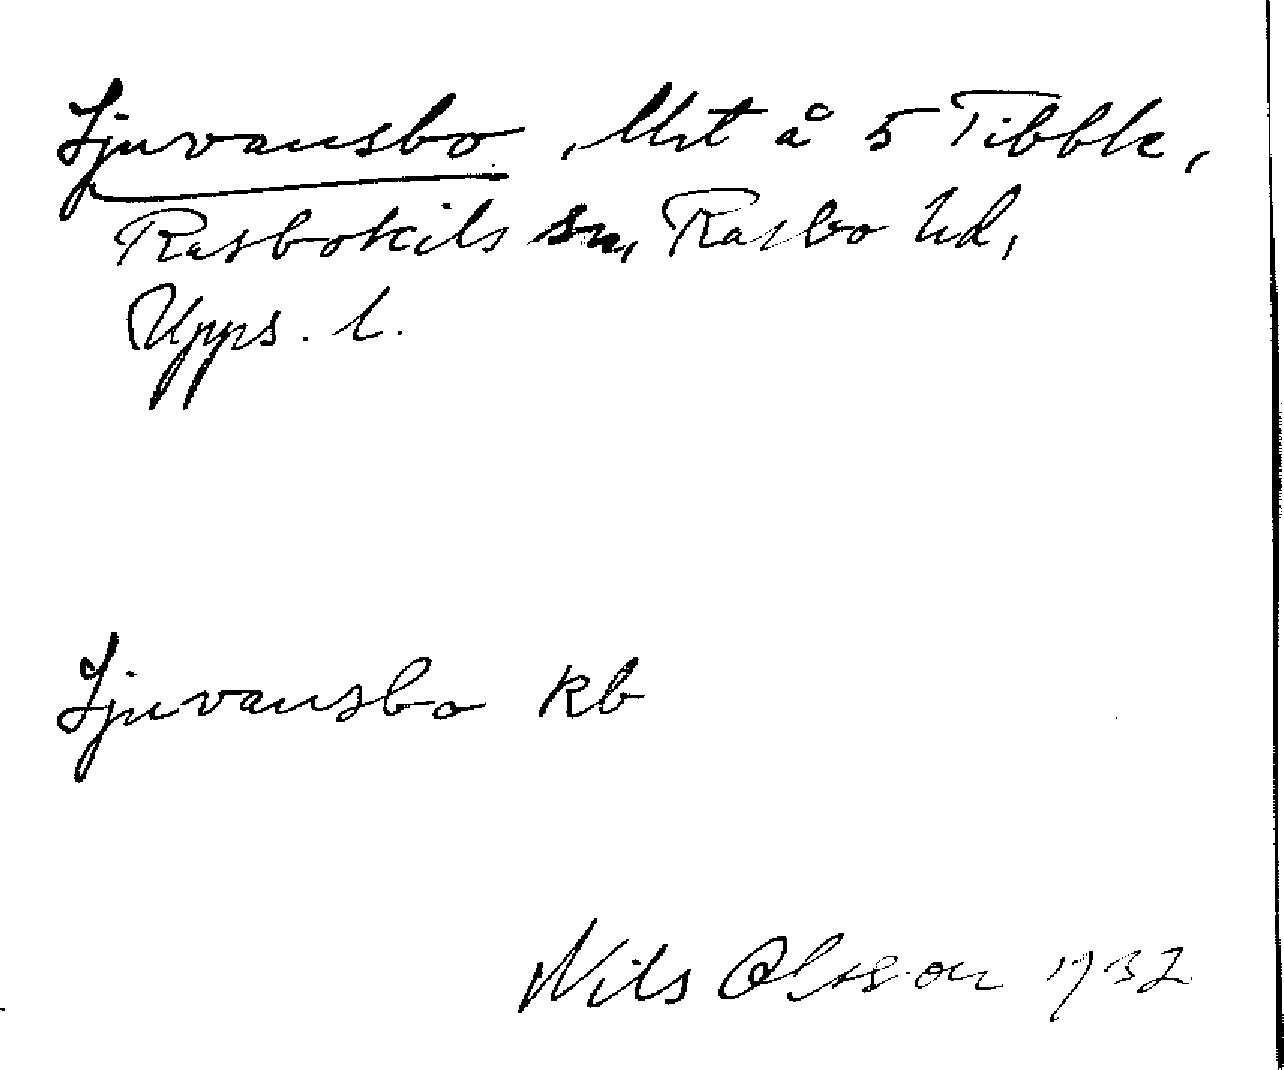 Ljuvansbo, Utjt å 5 Tibble,
Rasbokils sn, Rasbo hd,
Upps. l.
Ljuvansbo kb
Nils Olsson 1932